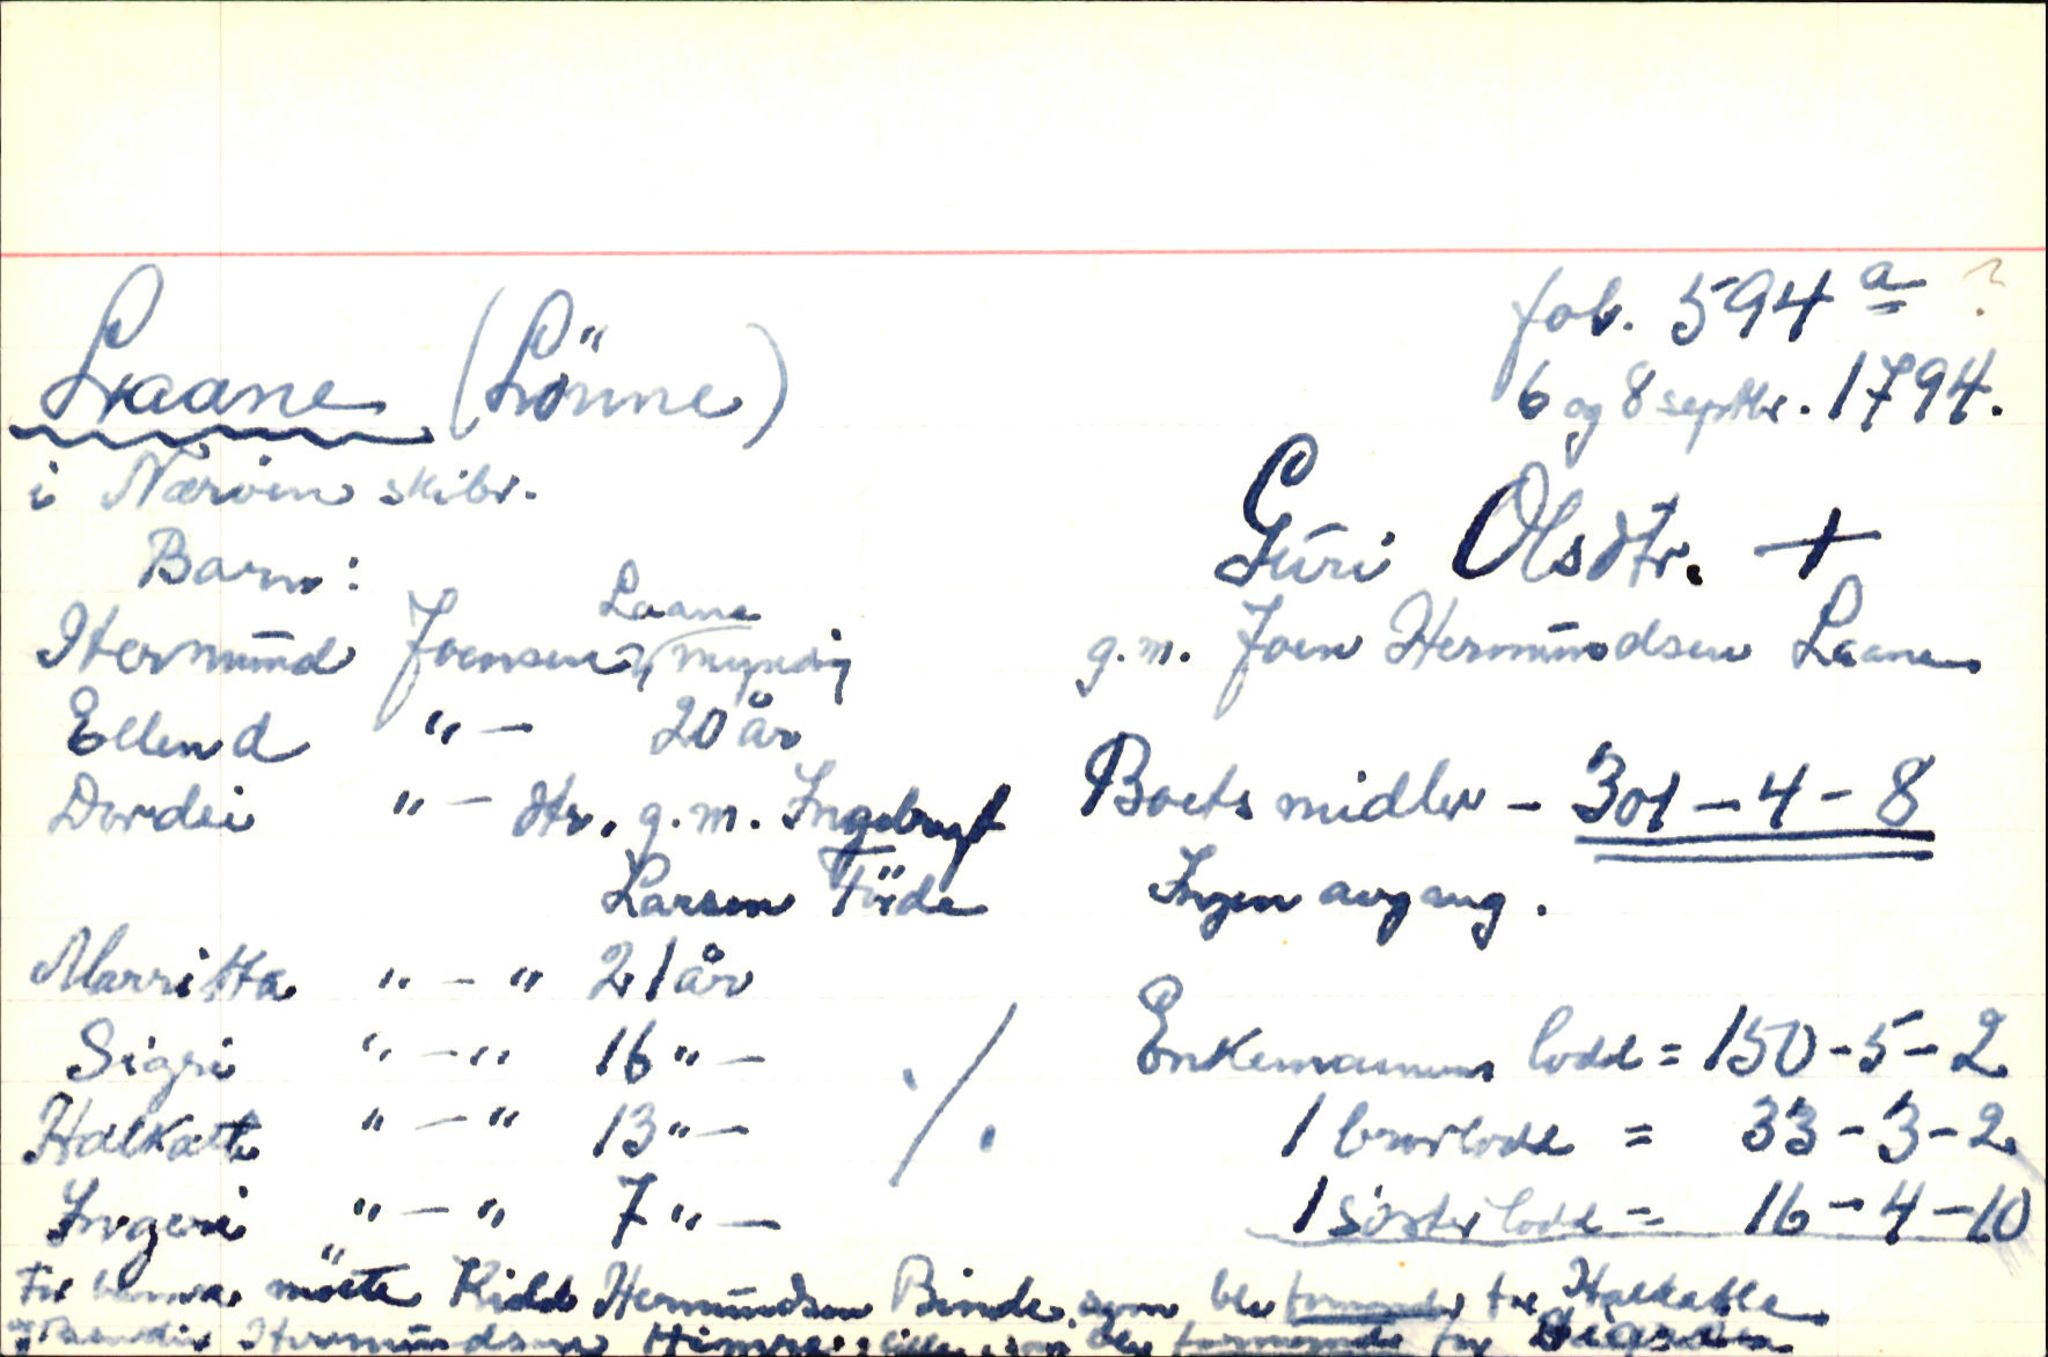 fol. 594 a ?
Laane (Lönne)
6 og 8 septbr. 1794.
i Nærvin skibr.
Guri Olsdtr. +
g.m. Joen Hermundsen Laane
Barn:
Laane
Hermund Joensen, myndig
Ellend "— 20 år
Dordei "— dtr. g.m. Ingebrigt
Larsen Tüde
Marritta " — " 21 år
Sigri " — " 16 " —
Halkatte " — " 13 " —
Ingeri " — " 7 " —
./.
Boets midler - 301 - 4 - 8
Ingen avgang.
Enkemannens lodd = 150 - 5 - 2
1 brorlodd = 33 - 3 - 2
1 sösterlodd = 16 - 4 - 10
For barna møtte Hermundsen Binde, som ble formynder for Halkatte
Hermundsen som ble formynder for